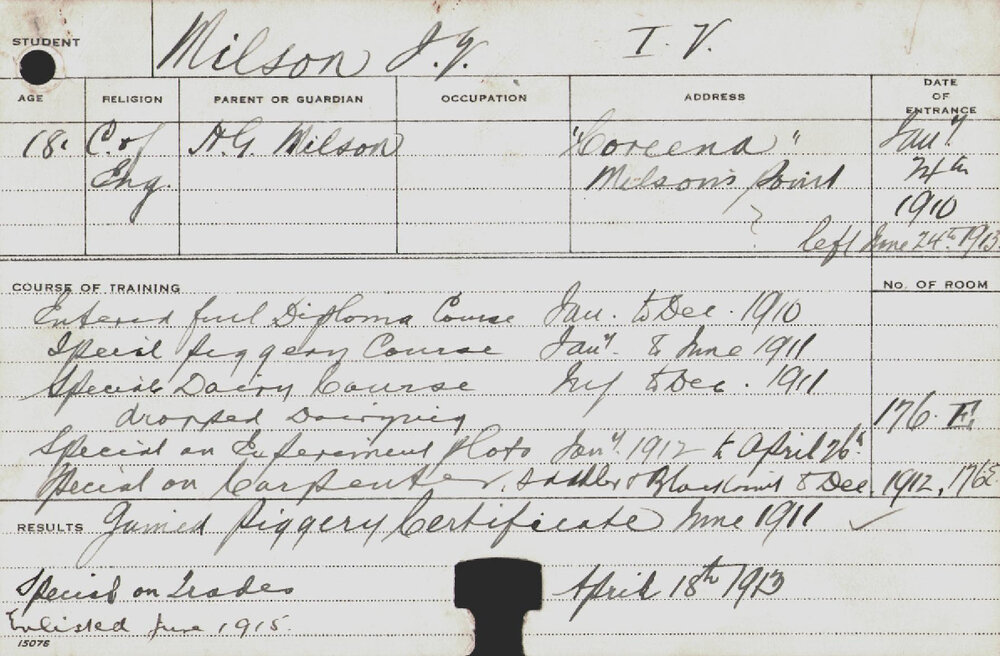 STUDENT Milson J.Y. I. V.
AGE RELIGION PARENT OR GUARDIAN OCCUPATION ADDRESS DATE OF ENTRANCE
18. C. of A.G. Milson "Coreena" Jany.
Eng. Milson's Point 24th
1910
left June 24th 1913
COURSE OF TRAINING No. OF ROOM
Entered full Diploma Course Jan. to Dec. 1910
Special Piggery Course Jany. to June 1911
Special Dairy Course July to Dec. 1911
dropped Dairying 176. E.
Special on Experiment Plots Jany. 1912 to April 26th
Special on Carpenter, Saddler & Blacksmit to Dec. 1912, 176E
RESULTS Gained Piggery Certificate June 1911 ✓
Special on Trades April 18th 1913
Enlisted June 1915.
15076